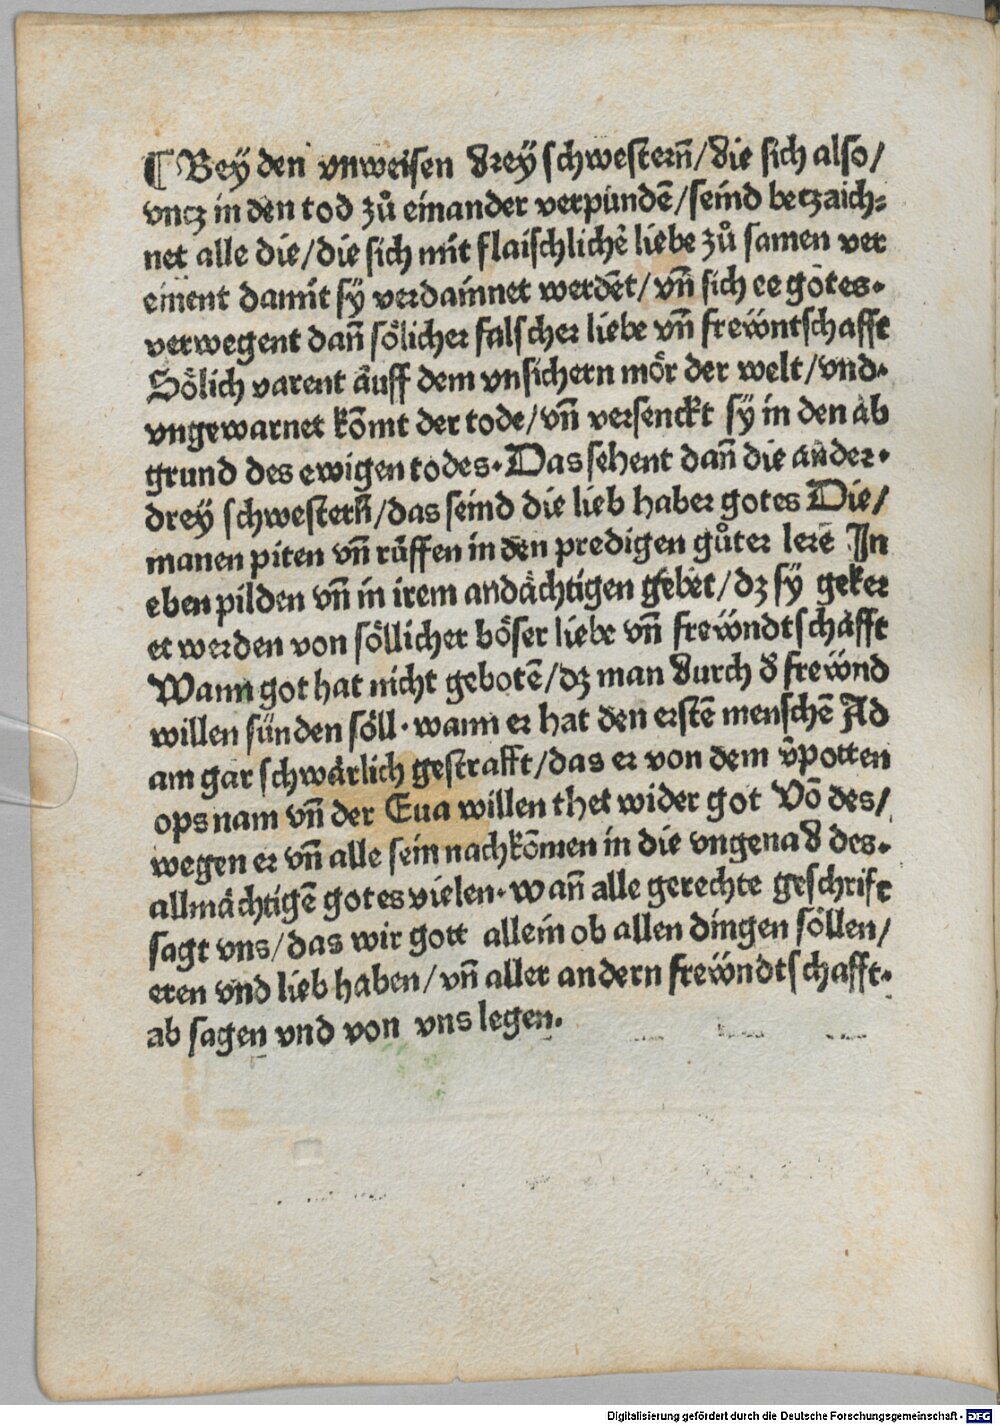 ¶ Bey den vnweisen drey schwestern̄/die sich also/
vntz in den tod zů einander verpundē/seind betzaich⸗
net alle die/die sich mit flaischlichē liebe zů samen ver
einent damit sy verdamnet werdēt/vn̄ sich ee gotes·
verwegent dan̄ sölicher falscher liebe vn̄ frewntschafft
Sölich varent auff dem vnsichern mör der welt/vnd·
vngewarnet kōmt der tode/vn̄ versenckt sy in den ab
grund des ewigen todes·Das sehent dan̄ die ander·
drey schwestern̄/das seind die lieb haber gotes Die/
manen piten vn̄ rüffen in den predigen gůter lere In
eben pilden vn̄ in irem andächtigen gebet/dz sy geker
et werden von söllicher böser liebe vn̄ frewndtschafft
Wann got hat nicht gebotē/dz man durch d̓ frewnd
willen sünden söll·wann er hat den erstē menschē Ad
am gar schwärlich gestrafft/das er von dem v̄potten
ops nam vn̄ der Eua willen thet wider got Vō des/
wegen er vn̄ alle sein nachkōmen in die vngenad des·
allmächtigē gotes vielen·wan̄ alle gerechte geschrift
sagt vns/das wir gott allein ob allen dingen söllen/
eren vnd lieb haben/vn̄ aller andern frewndtschafft·
ab sagen vnd von vns legen.
Digitalisierung gefördert durch die Deutsche Forschungsgemeinschaft - DFG